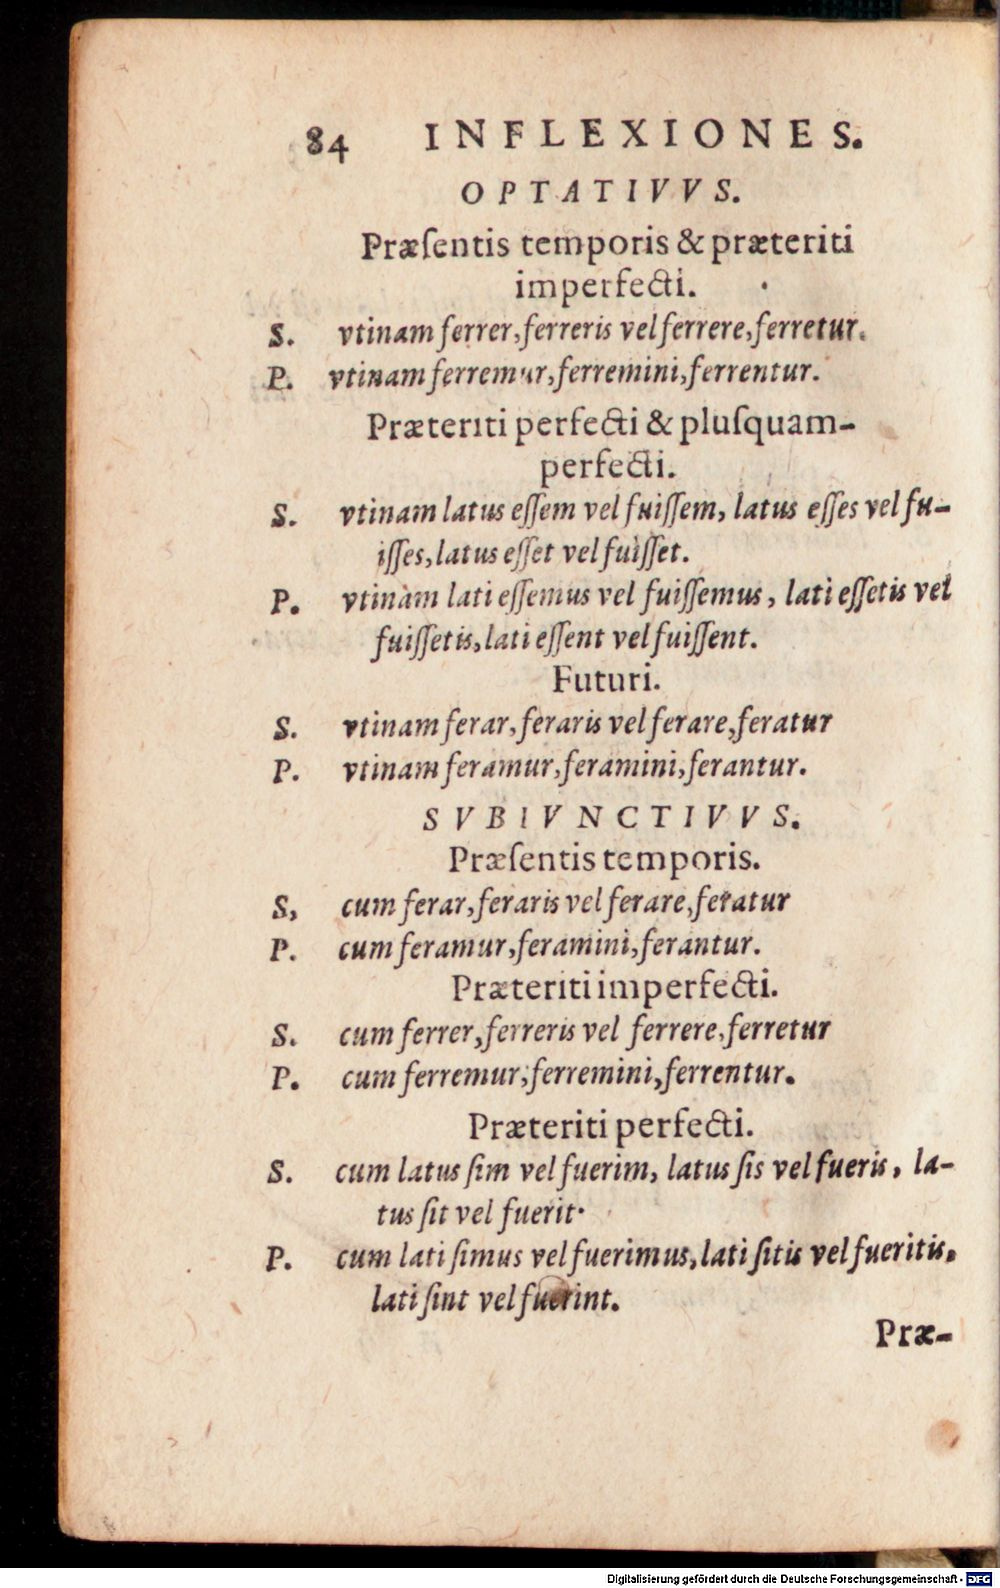 84 INFLEXIONES.
OPTATIVVS.
Præſentis temporis & præteriti
imperfecti.
S. vtinam ferrer, ferreris vel ferrere, ferretur.
P. vtinam ferremur, ferremini, ferrentur.
Præteriti perfecti & pluſquam-
perfecti.
S. vtinam latus eſſem vel fuiſſem, latus eſſes vel fu-
iſſes, latus eſſet vel fuiſſet.
P. vtinam lati eſſemus vel fuiſſemus, lati eſſetis vel
fuiſſetis, lati eſſent vel fuiſſent.
Futuri.
S. vtinam ferar, feraris vel ferare, feratur
P. vtinam feramur, feramini, ferantur.
SVBIVNCTIVVS.
Præſentis temporis.
S, cum ferar, feraris vel ferare, feratur
P. cum feramur, feramini, ferantur.
Præteriti imperfecti.
S. cum ferrer, ferreris vel ferrere, ferretur
P. cum ferremur, ferremini, ferrentur.
Præteriti perfecti.
S. cum latus ſim vel fuerim, latus ſis vel fueris, la-
tus ſit vel fuerit.
P. cum lati ſimus vel fuerimus, lati ſitis vel fueritis,
lati ſint vel fuerint.
Præ-
Digitalisierung gefördert durch die Deutsche Forschungsgemeinschaft - DFG